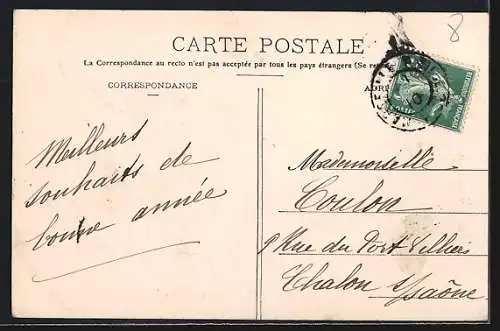 8
CARTE POSTALE
La Correspondance au recto n'est pas acceptée par tous les pays étrangers (Se re
CORRESPONDANCE
ADR
Meilleurs
souhaits de
bonne année
Mademoiselle
Coulon
9 Rue du Port Villiers
Chalon s/Saône